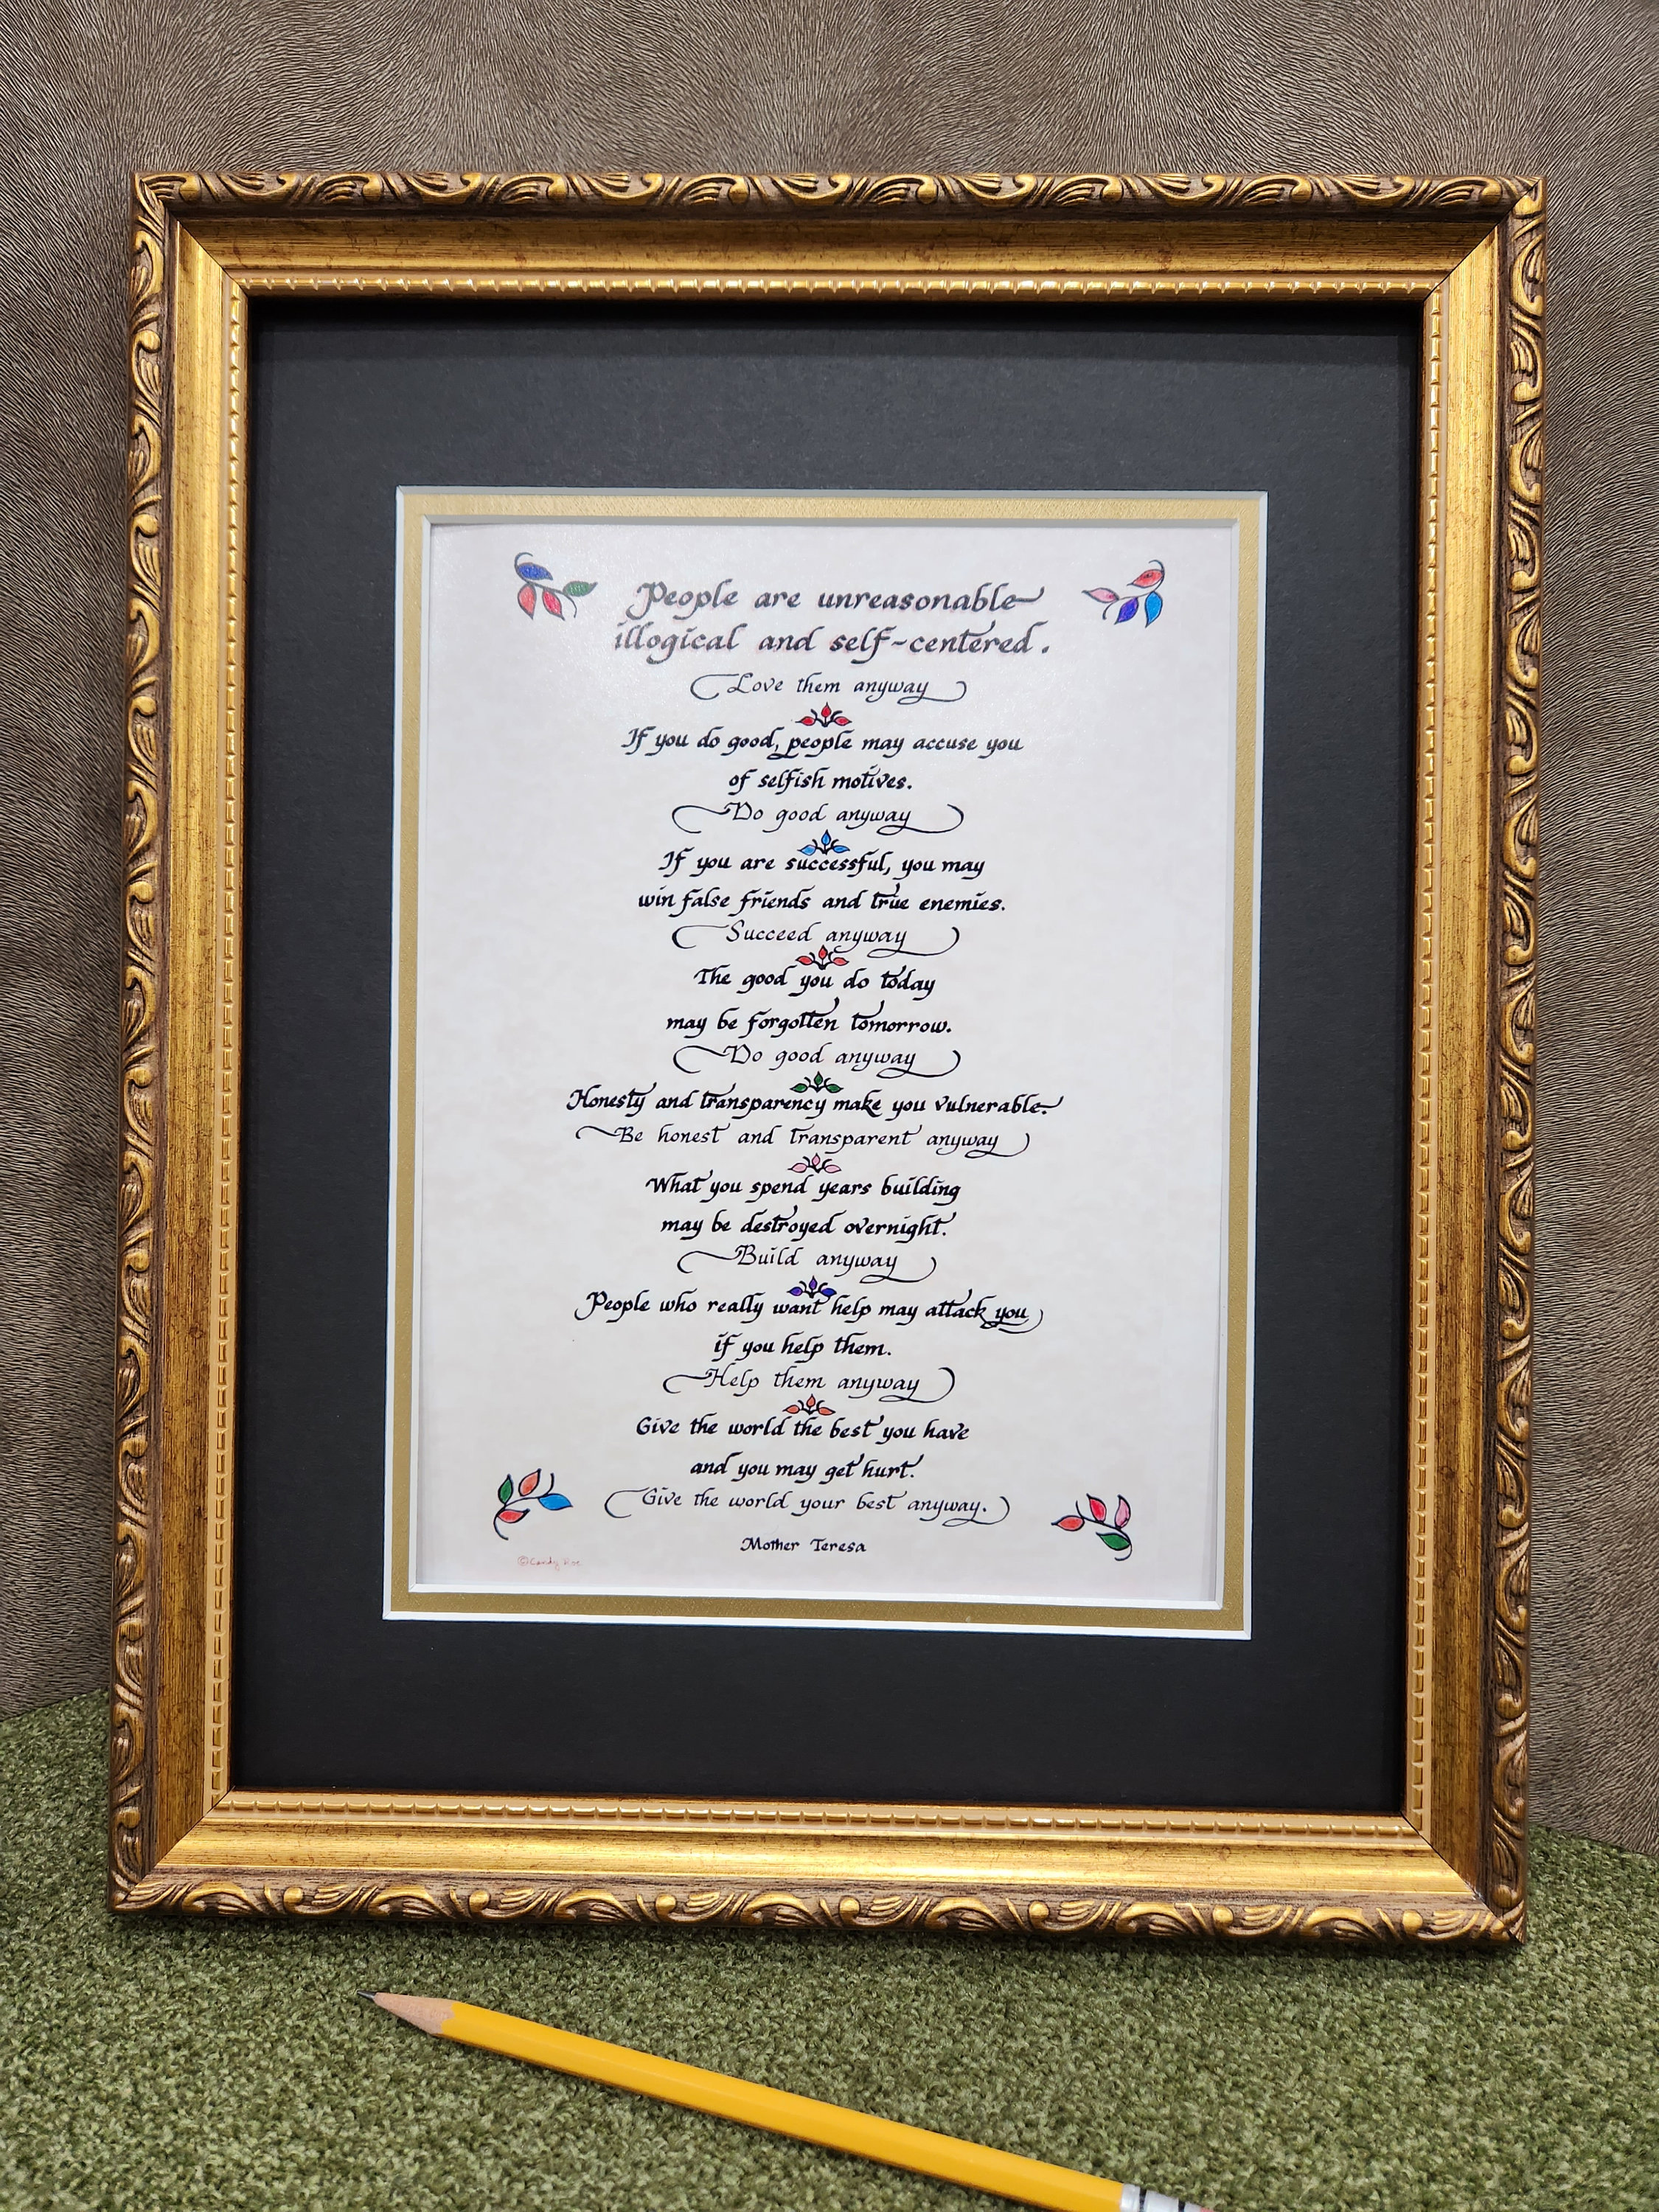 People are unreasonable
illogical and self-centered.
Love them anyway
If you do good, people may accuse you
of selfish motives.
Do good anyway
If you are successful, you may
win false friends and true enemies.
Succeed anyway
The good you do today
may be forgotten tomorrow.
Do good anyway
Honesty and transparency make you vulnerable.
Be honest and transparent anyway
What you spend years building
may be destroyed overnight.
Build anyway
People who really want help may attack you
if you help them.
Help them anyway
Give the world the best you have
and you may get hurt.
Give the world your best anyway.
Mother Teresa
©Candy